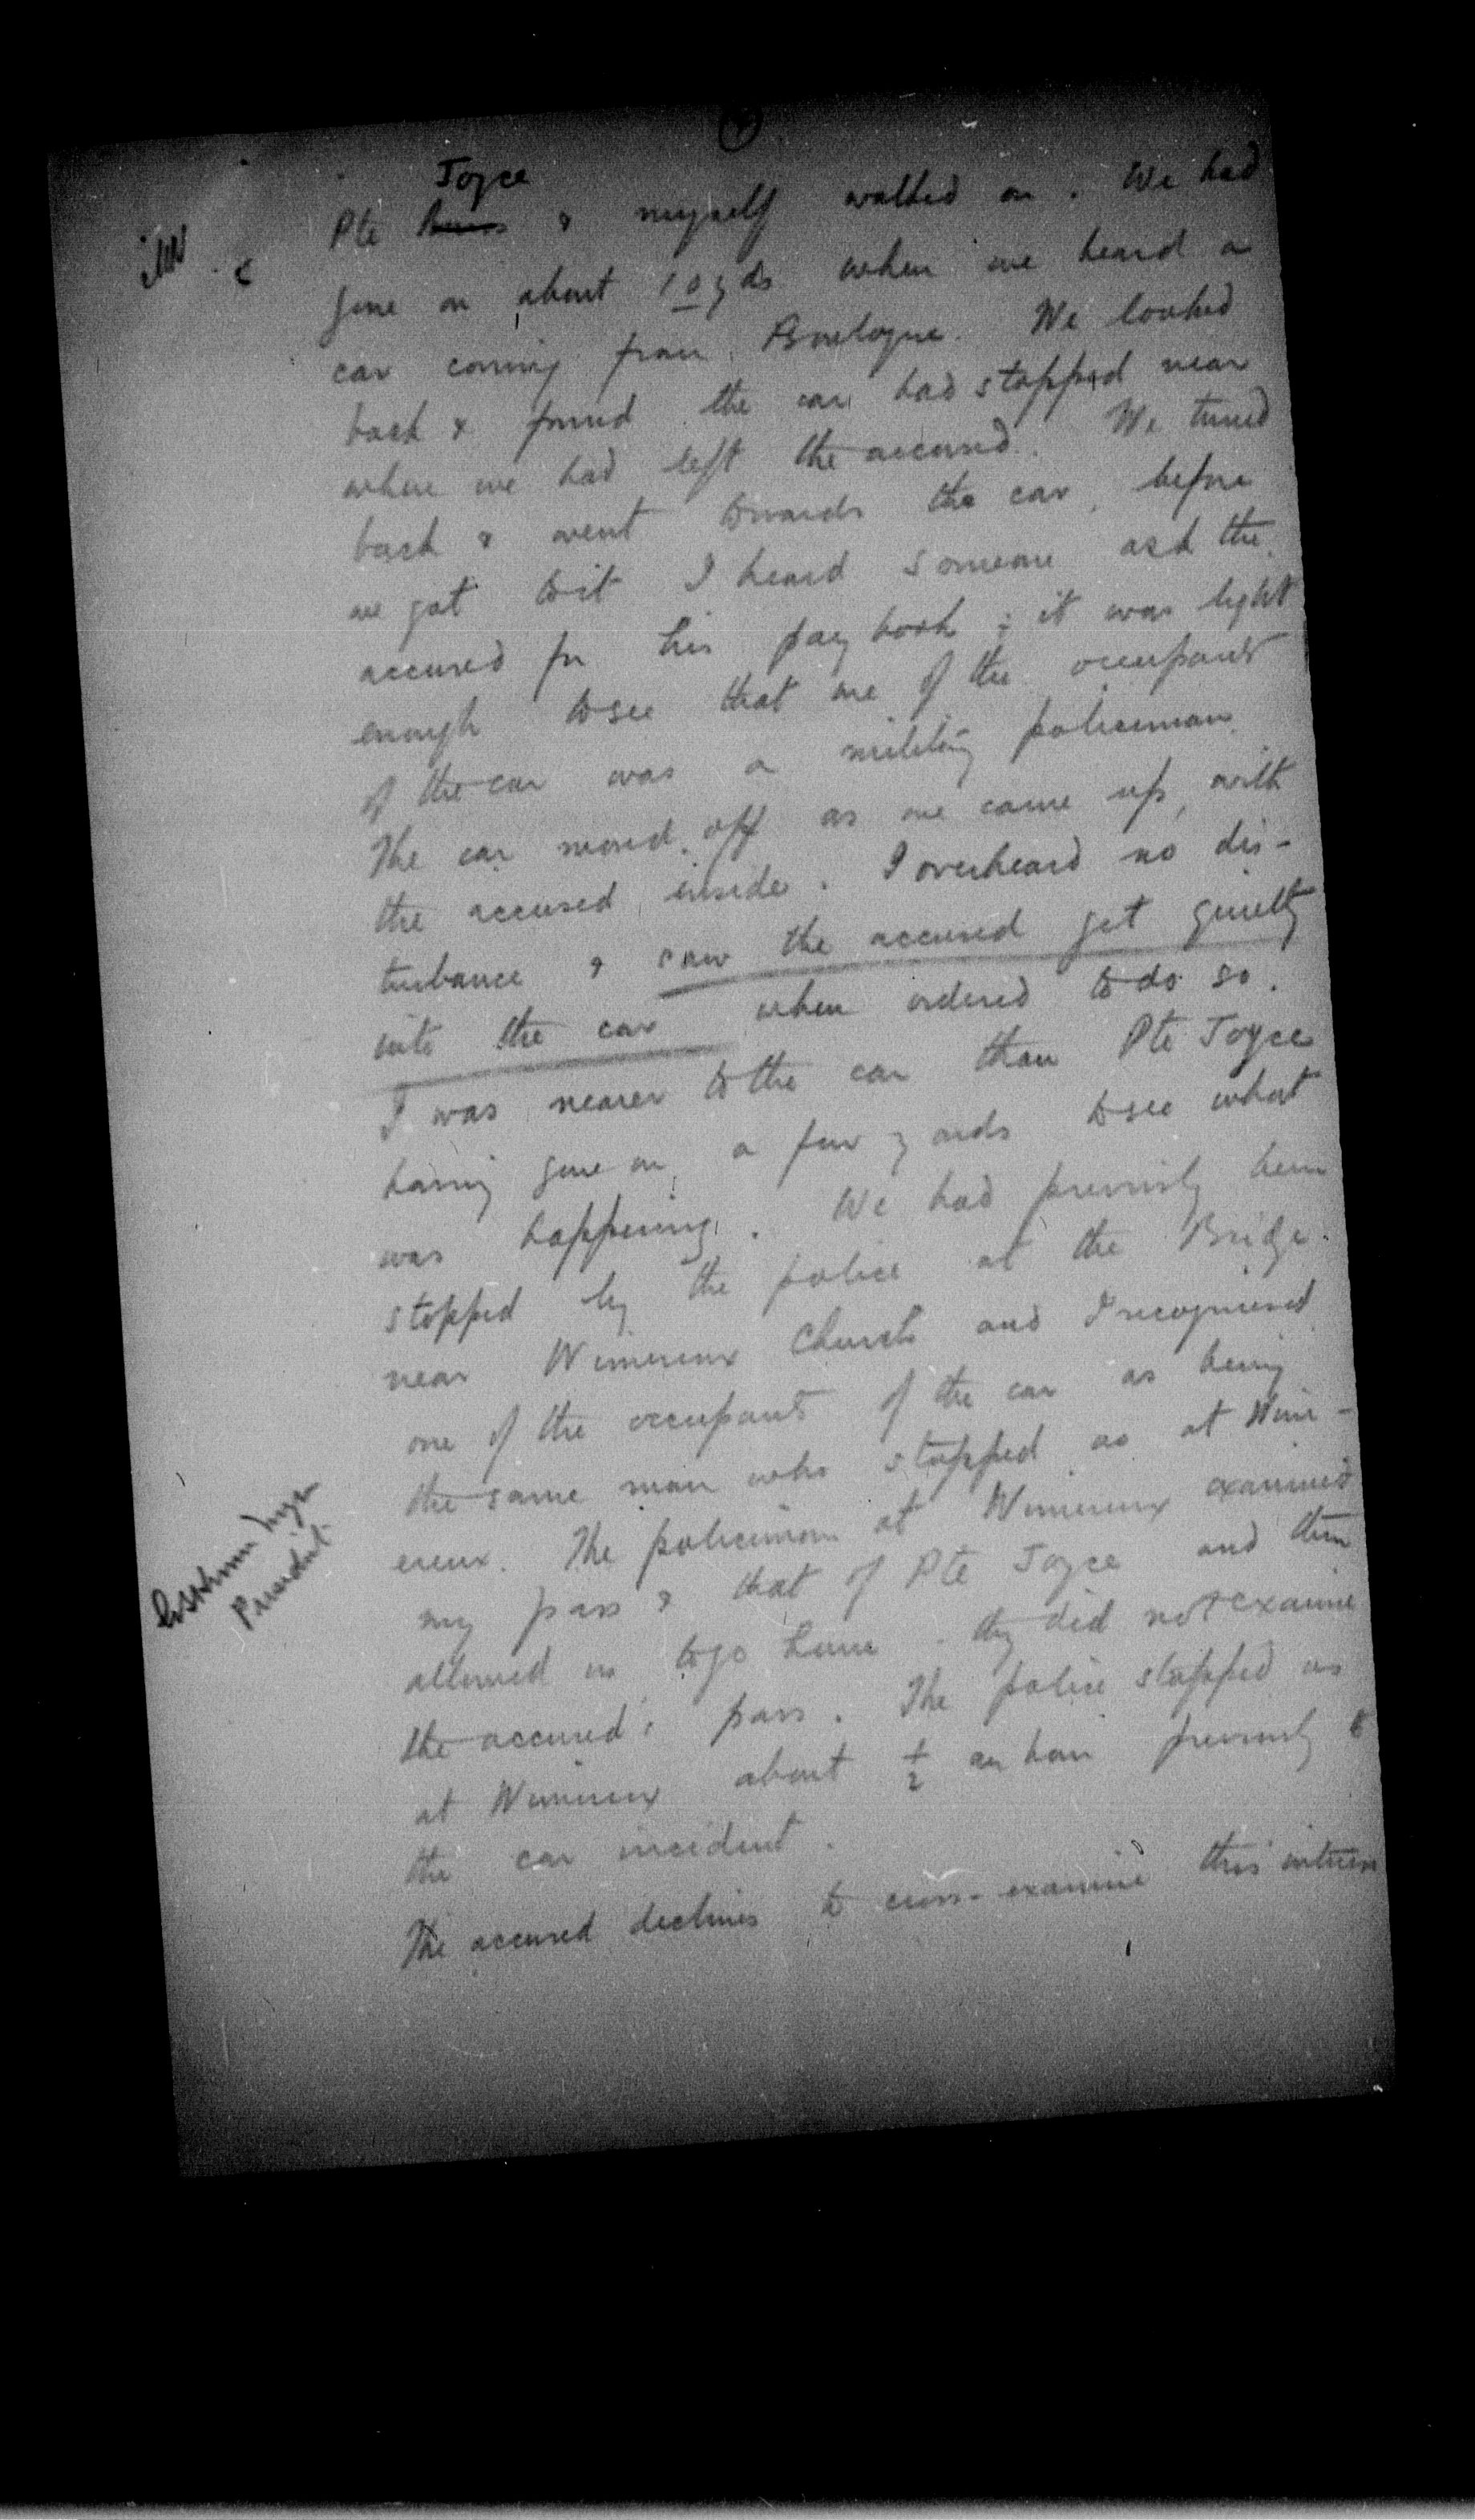 Joyce
Pte & myself walked on. We had
gone on about 10 yds when we heard a
car coming from Boulogne. We looked
back & found the car had stopped near
where we had left the accused. We turned
back & went towards the car, before
we got to it I heard someone ask the
accused for his pay book; it was light
enough to see that one of the occupants
of the car was a military policeman.
The car moved off as we came up, with
the accused inside. I overheard no dis-
turbance & saw the accused get quietly
into the car when ordered to do so.
I was nearer to the car than Pte Joyce
having gone on a few yards to see what
was happening. We had previously been
stopped by the police at the Bridge
near Wimereux Church and I recognised
one of the occupants of the car as being
the same man who stopped us at Wim-
ereux. The policeman at Wimereux examined
my pass & that of Pte Joyce and then
allowed us to go home. they did not examine
the accused's pass. The police stopped us
at Wimereux about ½ an hour previously to
the car incident.
The accused declines to cross-examine this witness
President